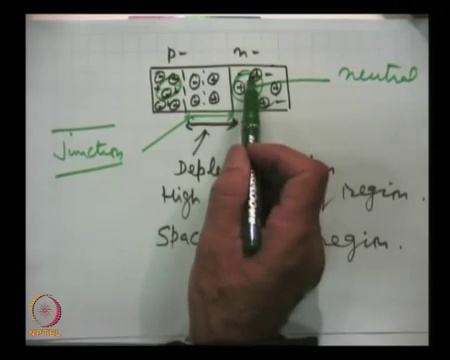 p- n-
neutral
Junction
Deple
High region.
Spac region.
NPTEL